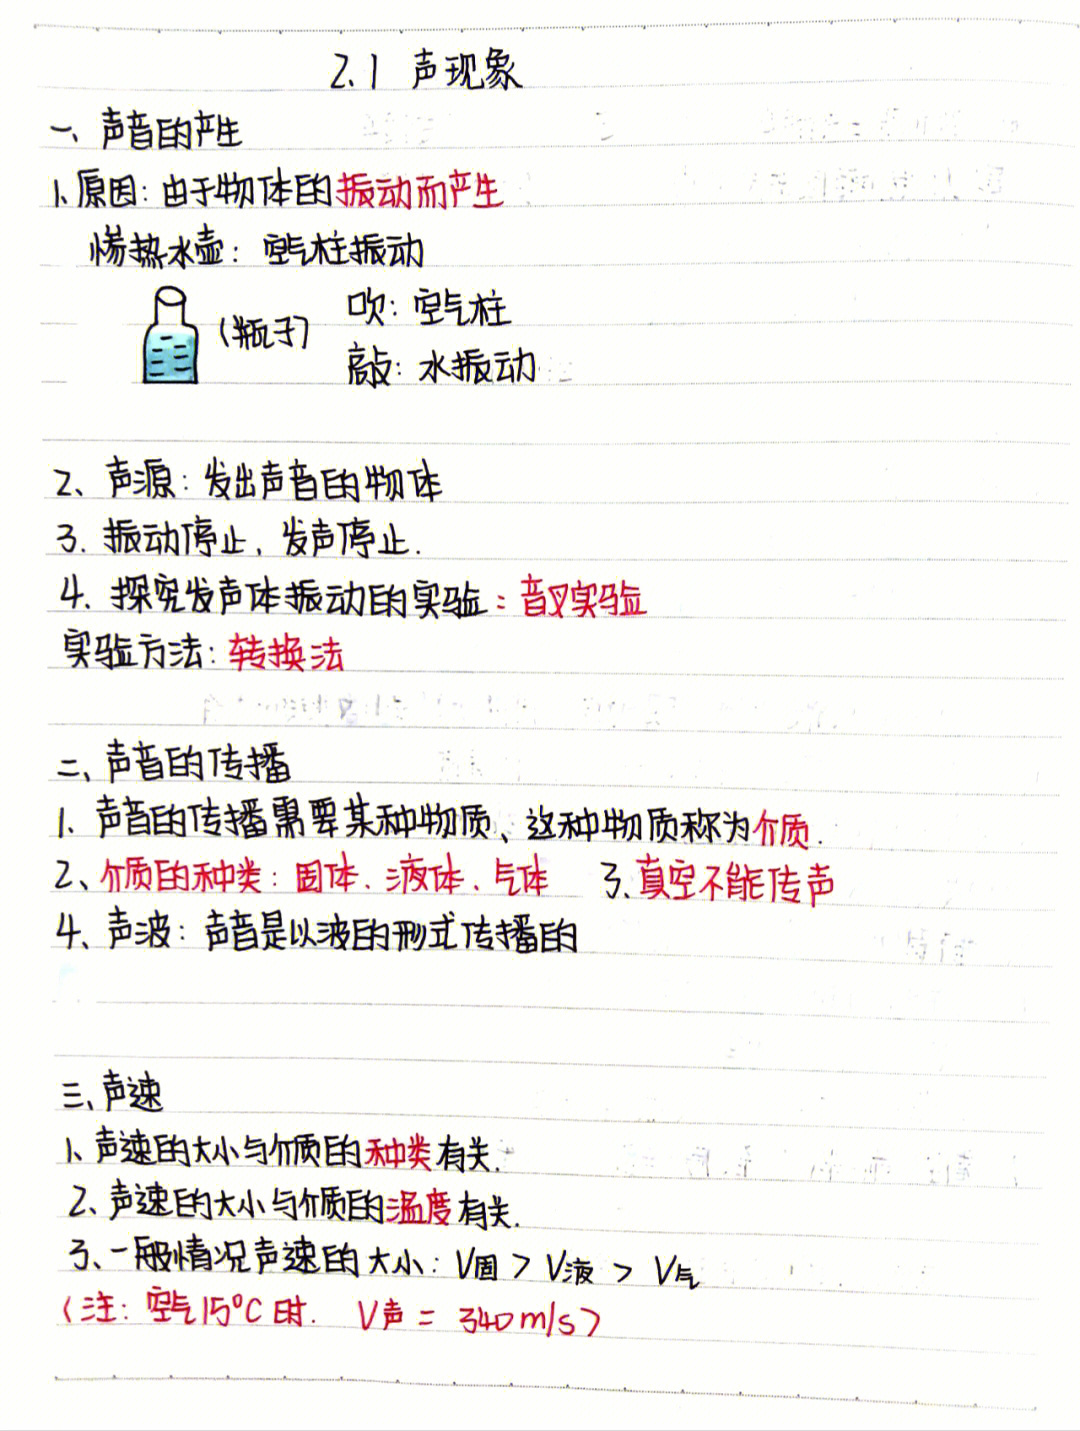 2.1 声现象
一、声音的产生
1、原因：由于物体的振动而产生
惨热水壶：空气柱振动
(瓶子) 吹：空气柱
敲：水振动
2、声源：发出声音的物体
3. 振动停止、发声停止.
4、探究发声体振动的实验：音叉实验
实验方法：转换法
二、声音的传播
1、声音的传播需要某种物质、这种物质称为介质.
2、介质的种类：固体、液体、气体 3、真空不能传声
4、声波：声音是以波的形式传播的
三、声速
1、声速的大小与介质的种类有关.
2、声速的大小与介质的温度有关.
3、一般情况声速的大小：V固 > V液 > V气
(注：空气15°C时. V声 = 340m/s)